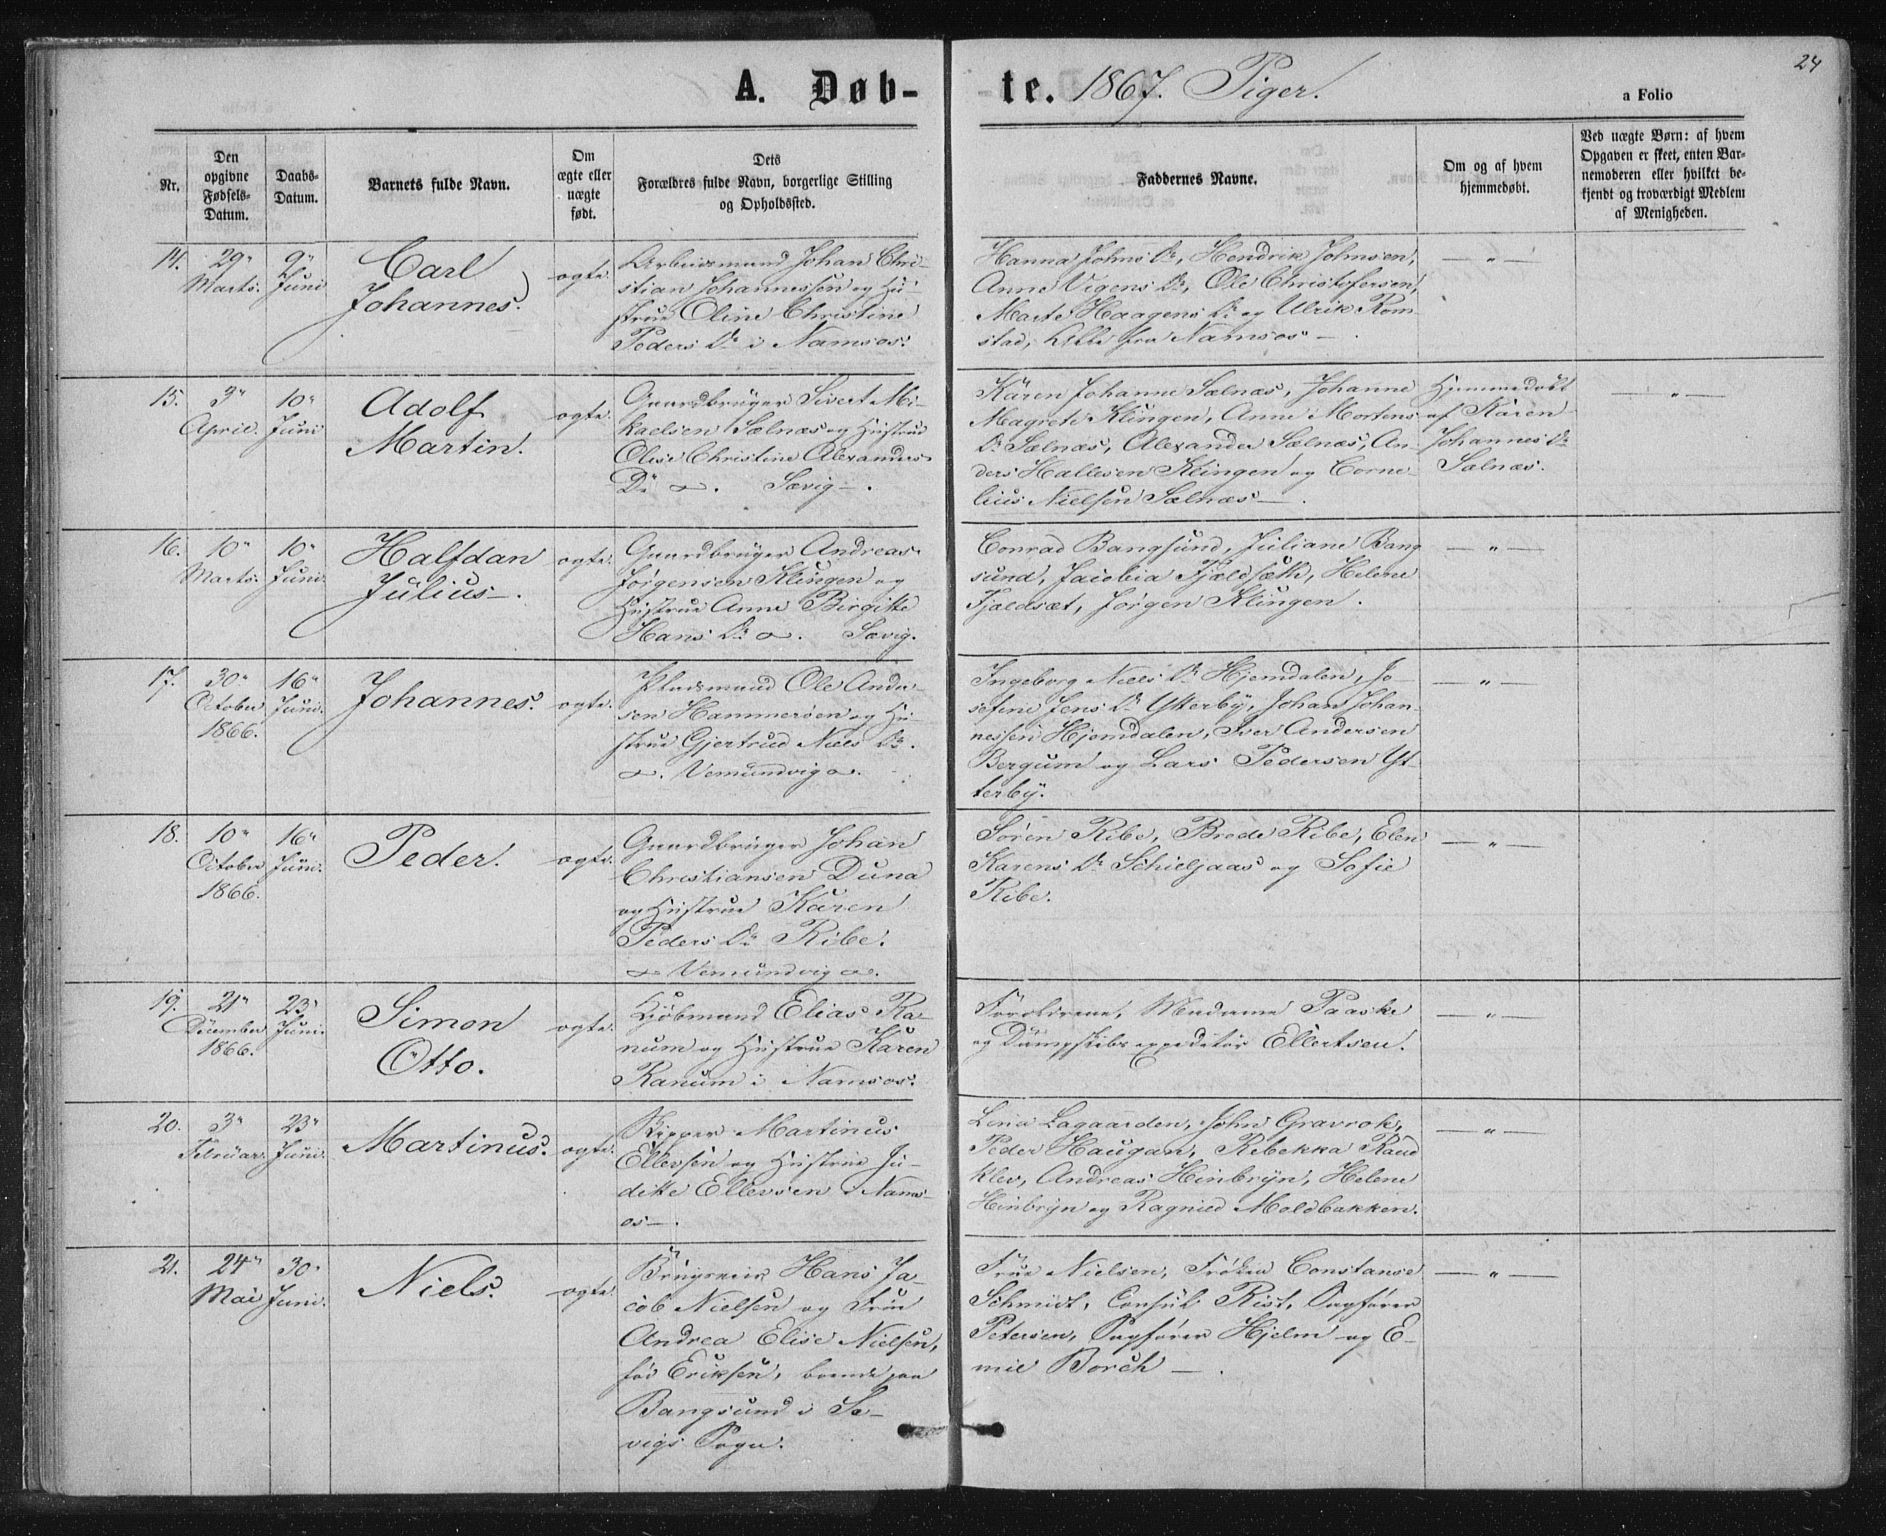 24
A. Døb-
te. 1867. Piger.
a Folio
Nr.
Den opgivne Fødsels-Datum.
Daabs-Datum.
Barnets fulde Navn.
Om ægte eller uægte født.
Dets Forældres fulde Navn, borgerlige Stilling og Opholdssted.
Faddernes Navne.
Om og af hvem hjemmedøbt.
Ved uægte Børn: af hvem Opgaven er skeet, enten Barnemoderen eller hvilket bekjendt og troværdigt Medlem af Menigheden.
14.
29"
Marts.
9"
Juni
Carl
Johannes.
ægte.
Arbeidsmand Johan Chri-
stian Johannessen og Hu-
strue Oline Christine
Peders Dr i Namsos.
Hanna Johns Dr, Hendrik Johnsen,
Anne Vigens Dr, Ole Christofersen,
Marte Haagens Dr og Ulrik Rom-
stad, Alle fra Namsos —
— " —
15.
3"
April.
10"
Juni
Adolf
Martin.
ægte.
Gaardbruger Sivert Mi-
kaelsen Sælnæs og Hustrue
Olise Christine Alexanders
Dr Sævig —.
Karen Johanne Sælnæs, Johanne
Magrete Klingen, Anne Mortens
Dr Sælnæs, Alexander Sælnæs, An-
ders Hallesen Klingen og Corne-
lius Nielsen Sælnæs —.
Hjemmedøbt
af Karen
Johannes Dr
Sælnæs.
— " —
16.
10"
Marts.
10"
Juni.
Halfdan
Julius —.
ægte.
Gaardbruger Andreas
Jørgensen Klingen og
Hustrue Anne Birgitte
Hans Dr Sævig.
Conrad Bangsund, Juliane Bang
sund, Jacobia Fjeldsæth, Helene
Fjeldsæt, Jørgen Klingen.
— " —
17.
30"
October
1866.
16"
Juni.
Johannes.
ægte.
Pladsmand Ole Ander-
sen Hammersen og Hu-
strue Gjertrud Niels Dr.
Vemundvig.
Ingeborg Niels Dr Hjemdalen, Jo-
sefine Jens Dr Ytterby, Johan Johan-
nessen Hjemdalen, Iver Andersen
Bergum og Lars Pedersen Yt-
terby.
— " —
18.
10"
October
1866.
16"
Juni.
Peder.
ægte.
Gaardbruger Johan
Christiansen Duna
og Hustrue Karen
Peders Dr Ribe.
Vemundvig.
Søren Ribe, Brede Ribe, Elen
Karens Dr Schieljaas og Sofie
Ribe.
— " —
19.
21"
December
1866.
23"
Juni.
Simon
Otto.
ægte.
Kjøbmand Elias Ra-
num og Hustrue Karen
Ranum i Namsos.
Forældrene, Madame Paaske
og Dampskibsexpeditør Ellertsen.
— " —
20.
3"
Februar.
23"
Juni.
Martinus.
ægte.
Skipper Martinus
Ellevsen og Hustrue Ju-
ditte Ellevsen i Nams-
os —.
Lina Lagaarden, John Gravrok,
Peder Haugan, Rebekka Raud
klev, Andreas Hinbryn, Helene
Hinbryn og Ragnild Moldbakken.
— " —
21.
24"
Mai
30"
Juni.
Niels.
ægte.
Brugseier Hans Ja-
cob Nielsen og Frue
Andrea Elise Nielsen,
fød Eriksen, boende paa
Bangsund i Sæ-
vigs Sogn.
Frue Nielsen, Frøken Constanse
Schmidt, Consul Rist, Sagfører
Petersen, Sagfører Hjelm og E-
mil Borch —.
— " —